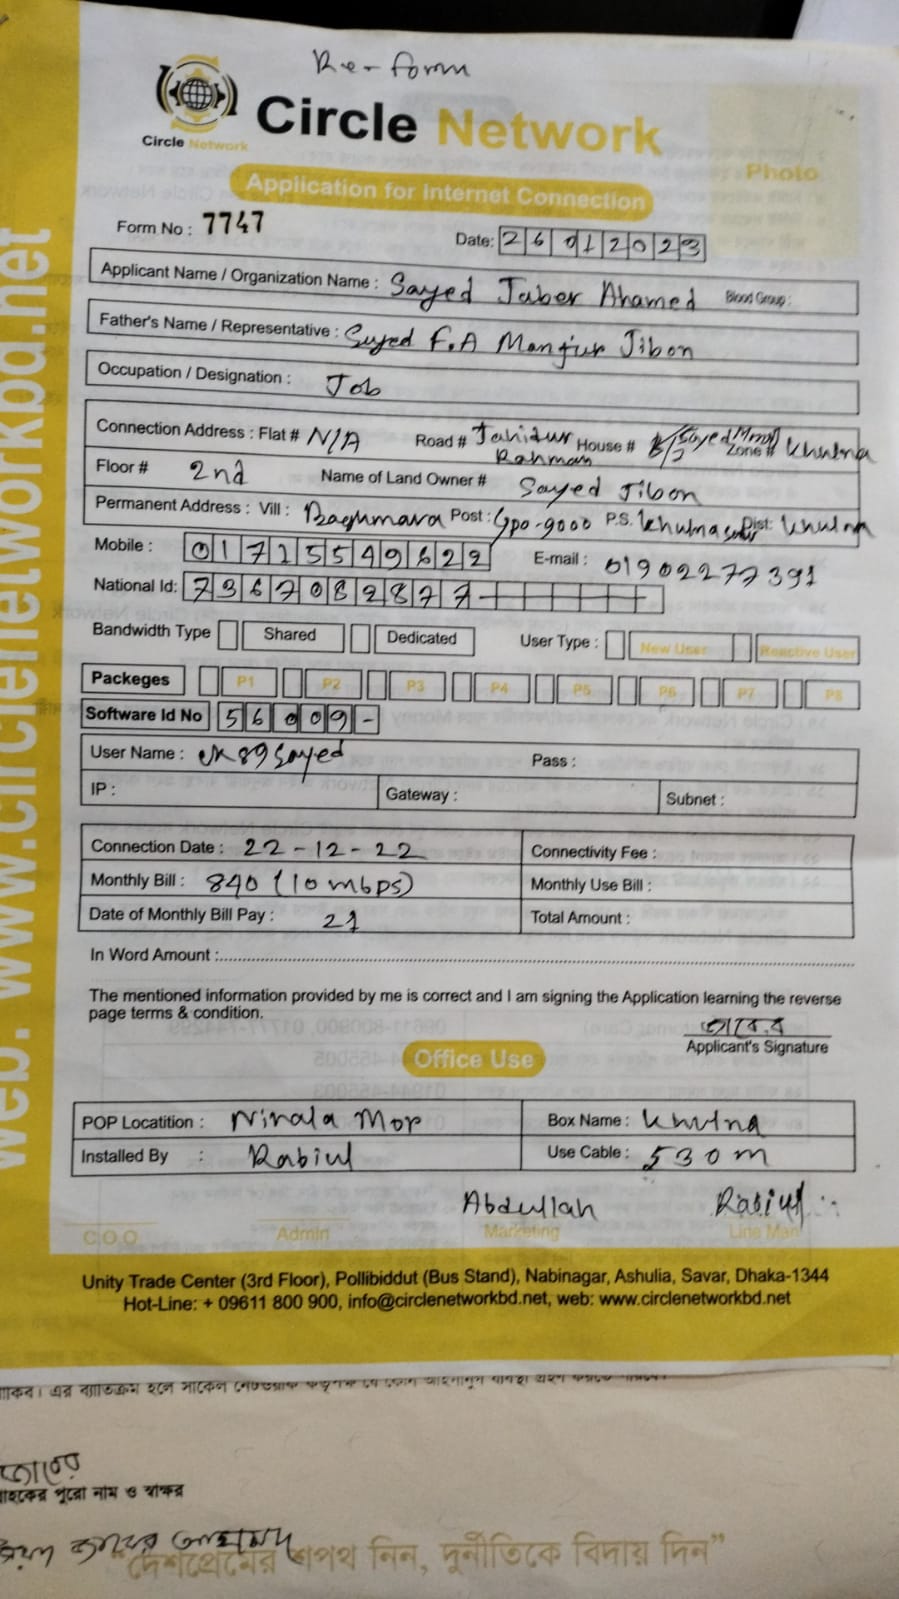 Re-form
Circle Network
Circle Network
Photo
Application for Internet Connection
Form No : 7747
Date: 26012023
Applicant Name / Organization Name : Sayed Jaber Ahamed Blood Group :
Father's Name / Representative : Sayed F.A Monjur Jibon
Occupation / Designation : Job
Connection Address : Flat # N/A Road # Jahidur Rahman House # Zone # Khulna
Floor # 2nd Name of Land Owner # Sayed Jibon
Permanent Address : Vill : Baghmara Post : Gpo-9000 P.S. Khulna Sadar Dist: Khulna
Mobile : 01715549622 E-mail : 01902277391
National Id: 7367082877
Bandwidth Type Shared Dedicated User Type : New User Reactive User
Packeges P1 P2 P3 P4 P5 P6 P7 P8
Software Id No 56009-
User Name : ck89sayed Pass :
IP : Gateway : Subnet :
Connection Date : 22-12-22 Connectivity Fee :
Monthly Bill : 840 (10 mbps) Monthly Use Bill :
Date of Monthly Bill Pay : 21 Total Amount :
In Word Amount :
The mentioned information provided by me is correct and I am signing the Application learning the reverse
page terms & condition.
জাবের
Applicant's Signature
Office Use
POP Locatition : Nirala Mor Box Name : Khulna
Installed By : Rabiul Use Cable : 530m
Abdullah Rabiul
C.O.O Admin Marketing Line Man
Unity Trade Center (3rd Floor), Pollibiddut (Bus Stand), Nabinagar, Ashulia, Savar, Dhaka-1344
Hot-Line: + 09611 800 900, info@circlenetworkbd.net, web: www.circlenetworkbd.net
web: www.circlenetworkbd.net
থাকিব। এর ব্যতিক্রম হলে সার্কেল নেটওয়ার্ক কর্তৃপক্ষ যে কোন আইনানুগ ব্যবস্থা গ্রহণ করতে পারবে।
জাবের
গ্রাহকের পুরো নাম ও স্বাক্ষর
জাবের আহামেদ
“দেশপ্রেমের শপথ নিন, দুর্নীতিকে বিদায় দিন”